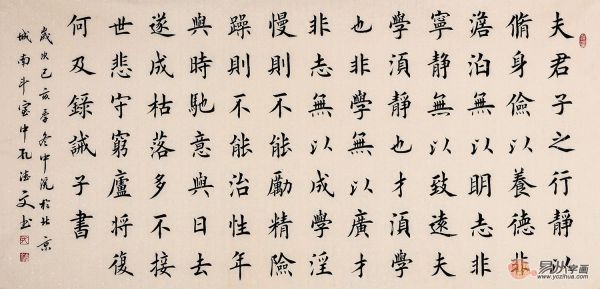 夫君子之行靜以
脩身儉以養德非
澹泊無以明志非
寧靜無以致遠夫
學須靜也才須學
也非學無以廣才
非志無以成學淫
慢則不能勵精險
躁則不能治性年
與時馳意與日去
遂成枯落多不接
世悲守窮廬將復
何及錄誡子書
歲次己亥冬中浣於北京
城南斗室中孔德文书
易从字画
www.yczihua.com